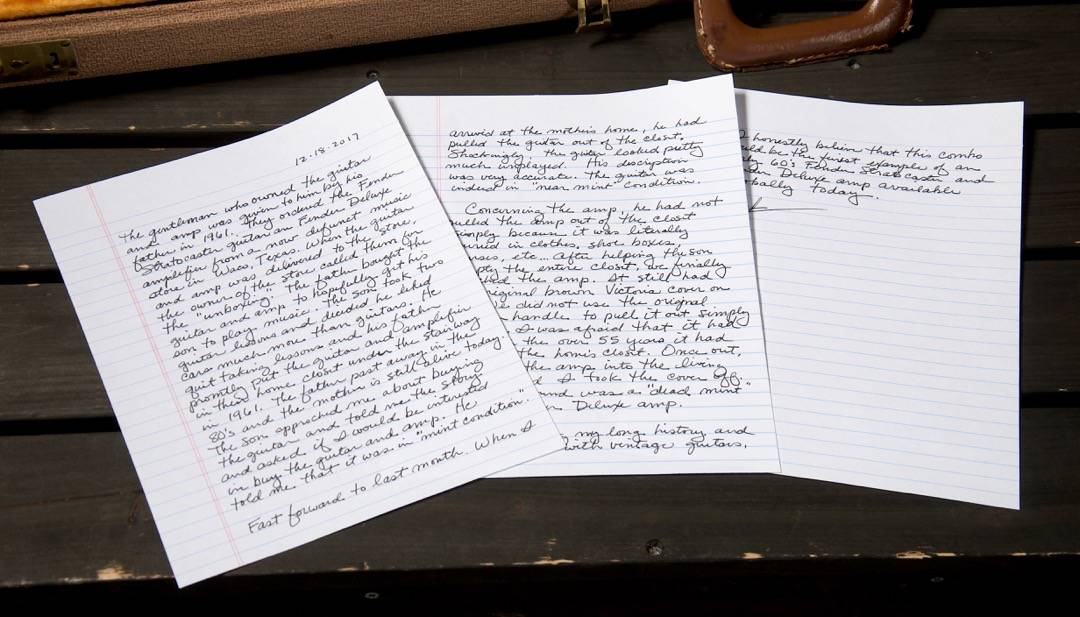 12.18.2017
The gentleman who owned the guitar
and amp was given to him by his
father in 1961. They ordered the Fender
Stratocaster guitar an Fender Deluxe
amplifier from a now defunct music
store in Waco, Texas. When the guitar
and amp was delivered to the store,
the owner of the store called them for
the "unboxing". The father bought the
guitar and amp to hopefully get his
son to play music. The son took two
guitar lessons and decided he liked
cars much more than guitars. He
quit taking lessons and his father
promptly put the guitar and amplifier
in their home closet under the stairway
in 1961. The father past away in the
80's and the mother is still alive today.
The son approched me about buying
the guitar and told me the story
and asked if I would be interested
in buy the guitar and amp. He
told me that it was in "mint condition."
Fast forward to last month. When I
arrived at the mothers home, he had
pulled the guitar out of the closet.
Shockingly, the guitar looked pretty
much unplayed. His description
was very accurate. The guitar was
indeed in "near mint" condition.
Concerning the amp, he had not
pulled the amp out of the closet
simply because it was literally
buried in clothes, shoe boxes,
etc... After helping the son
the entire closet, we finally
the amp. It still had
original brown Victoria cover on
did not use the original
handle to pull it out simply
I was afraid that it had
the over 55 years it had
the home's closet. Once out,
the amp into the living
I took the cover off.
and was a "dead mint"
Deluxe amp.
my long history and
with vintage guitars,
I honestly believe that this combo
be the finest examples of an
60's Fender Stratocaster and
Deluxe amp available
today.